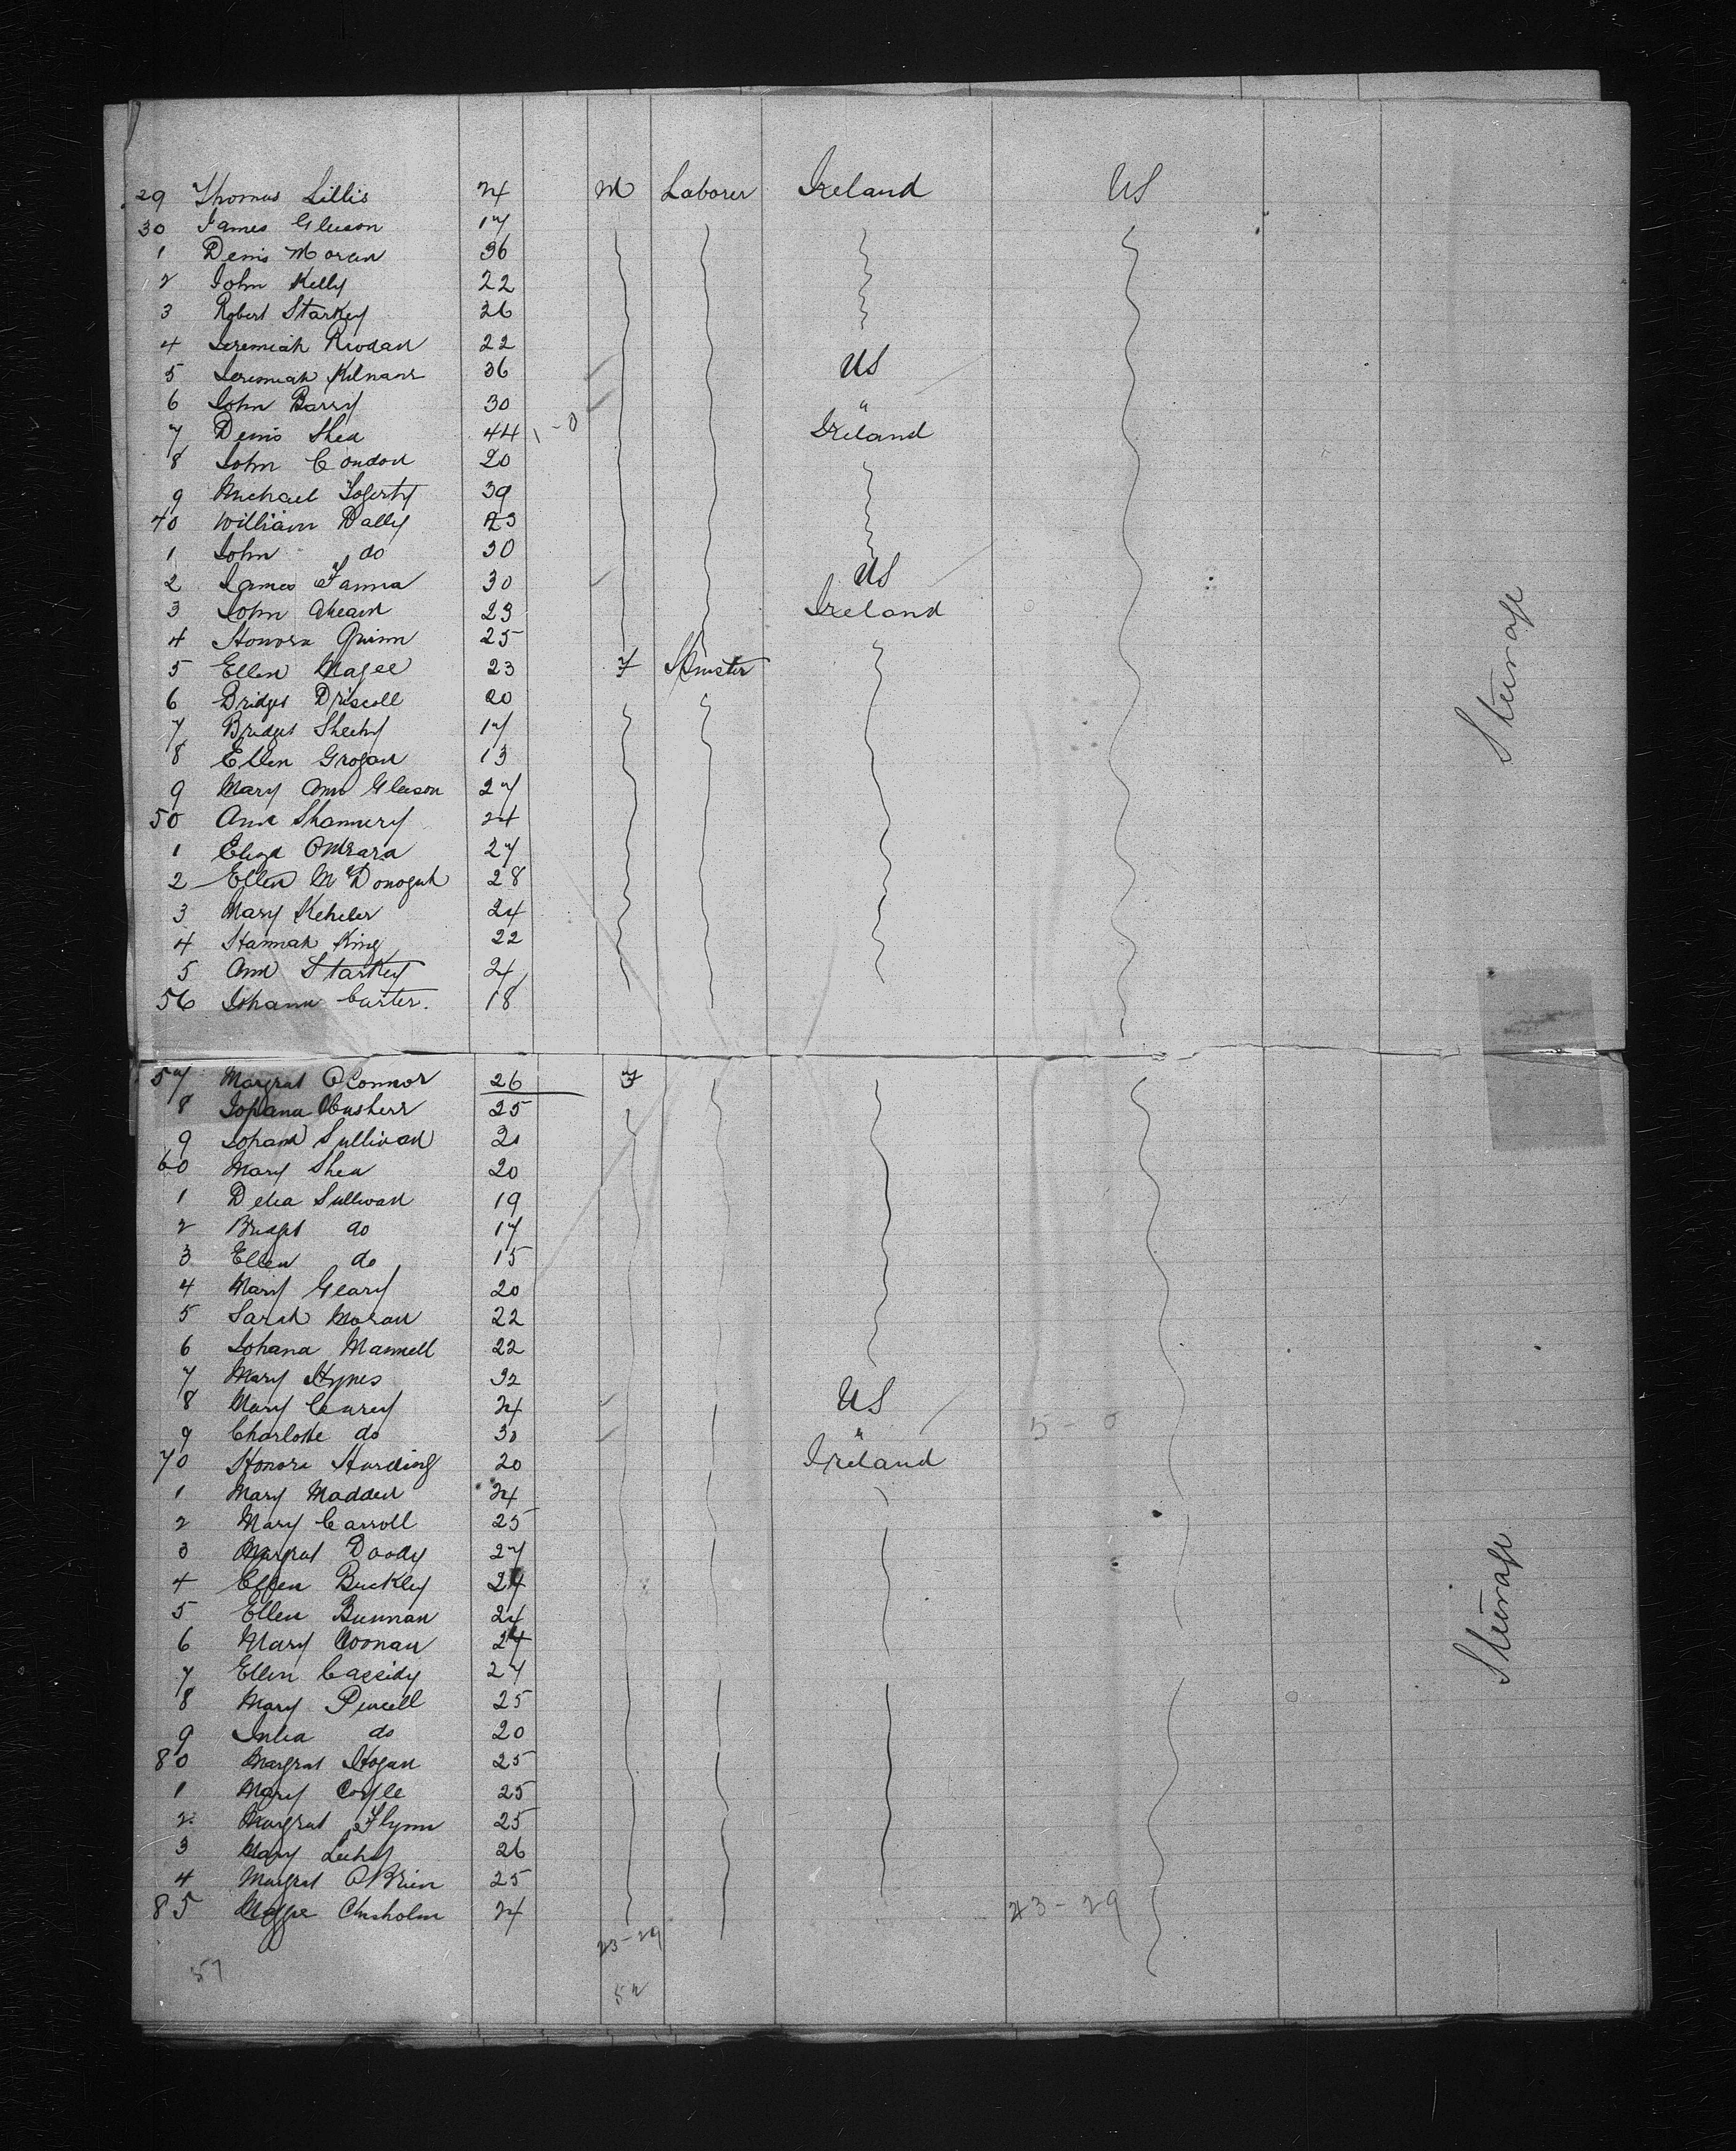 29 Thomas Lillis 24 M Laborer Ireland US
30 James Gleeson 17
1 Denis Moran 36
2 John Kelly 22
3 Robert Starkey 26
4 Jeremiah Riodan 22
5 Jeremiah 36 US
6 John Barry 30 "
7 Denis Shea 44 1-0 Ireland
8 John Condon 20
9 Michael Fogerty 39
40 William Dally 23
1 John do 30
2 James Fanna 30 US
3 John Ahearn 23 Ireland
4 Honora Quinn 25
5 Ellen Nagel 23 F
6 Bridget Driscoll 20
7 Bridget Sheehy 17
8 Ellen Grogan 13
9 Mary Ann Gleeson 27
50 Ann 24
1 Eliza OMeara 27
2 Ellen McDonoguh 28
3 Mary Keheler 24
4 Hannah King 22
5 Ann Starkey 24
56 Johana Carter. 18
57 Margrat OConnor 26 F
8 Johana 25
9 Johana Sullivan
60 Mary Shea 20
1 Delia Sullivan 19
2 Bridget do 17
3 Ellen do 15
4 Mary Geary 20
5 Sarah Moran 22
6 Johana Mannell 22
7 Mary Hynes 32
8 Mary Carey 24 US
9 Charlotte do 30 " 5-0
70 Honora Harding 20 Ireland
1 Mary Madden 24
2 Mary Carroll 25
3 Margrat Doody 27
4 Ellen Buckley 24
5 Ellen 24
6 Mary Noonan 24
7 Ellen Cassidy 27
8 Mary Purcell 25
9 Julia do 20
80 Margrat Hogan 25
1 Mary Coyle 25
2 Margrat Flynn 25
3 Mary Leehy 26
4 Margrat OBrien 25
85 Maggie Chisholm 24 23-29
23-29
57 52
Steerage
Steerage